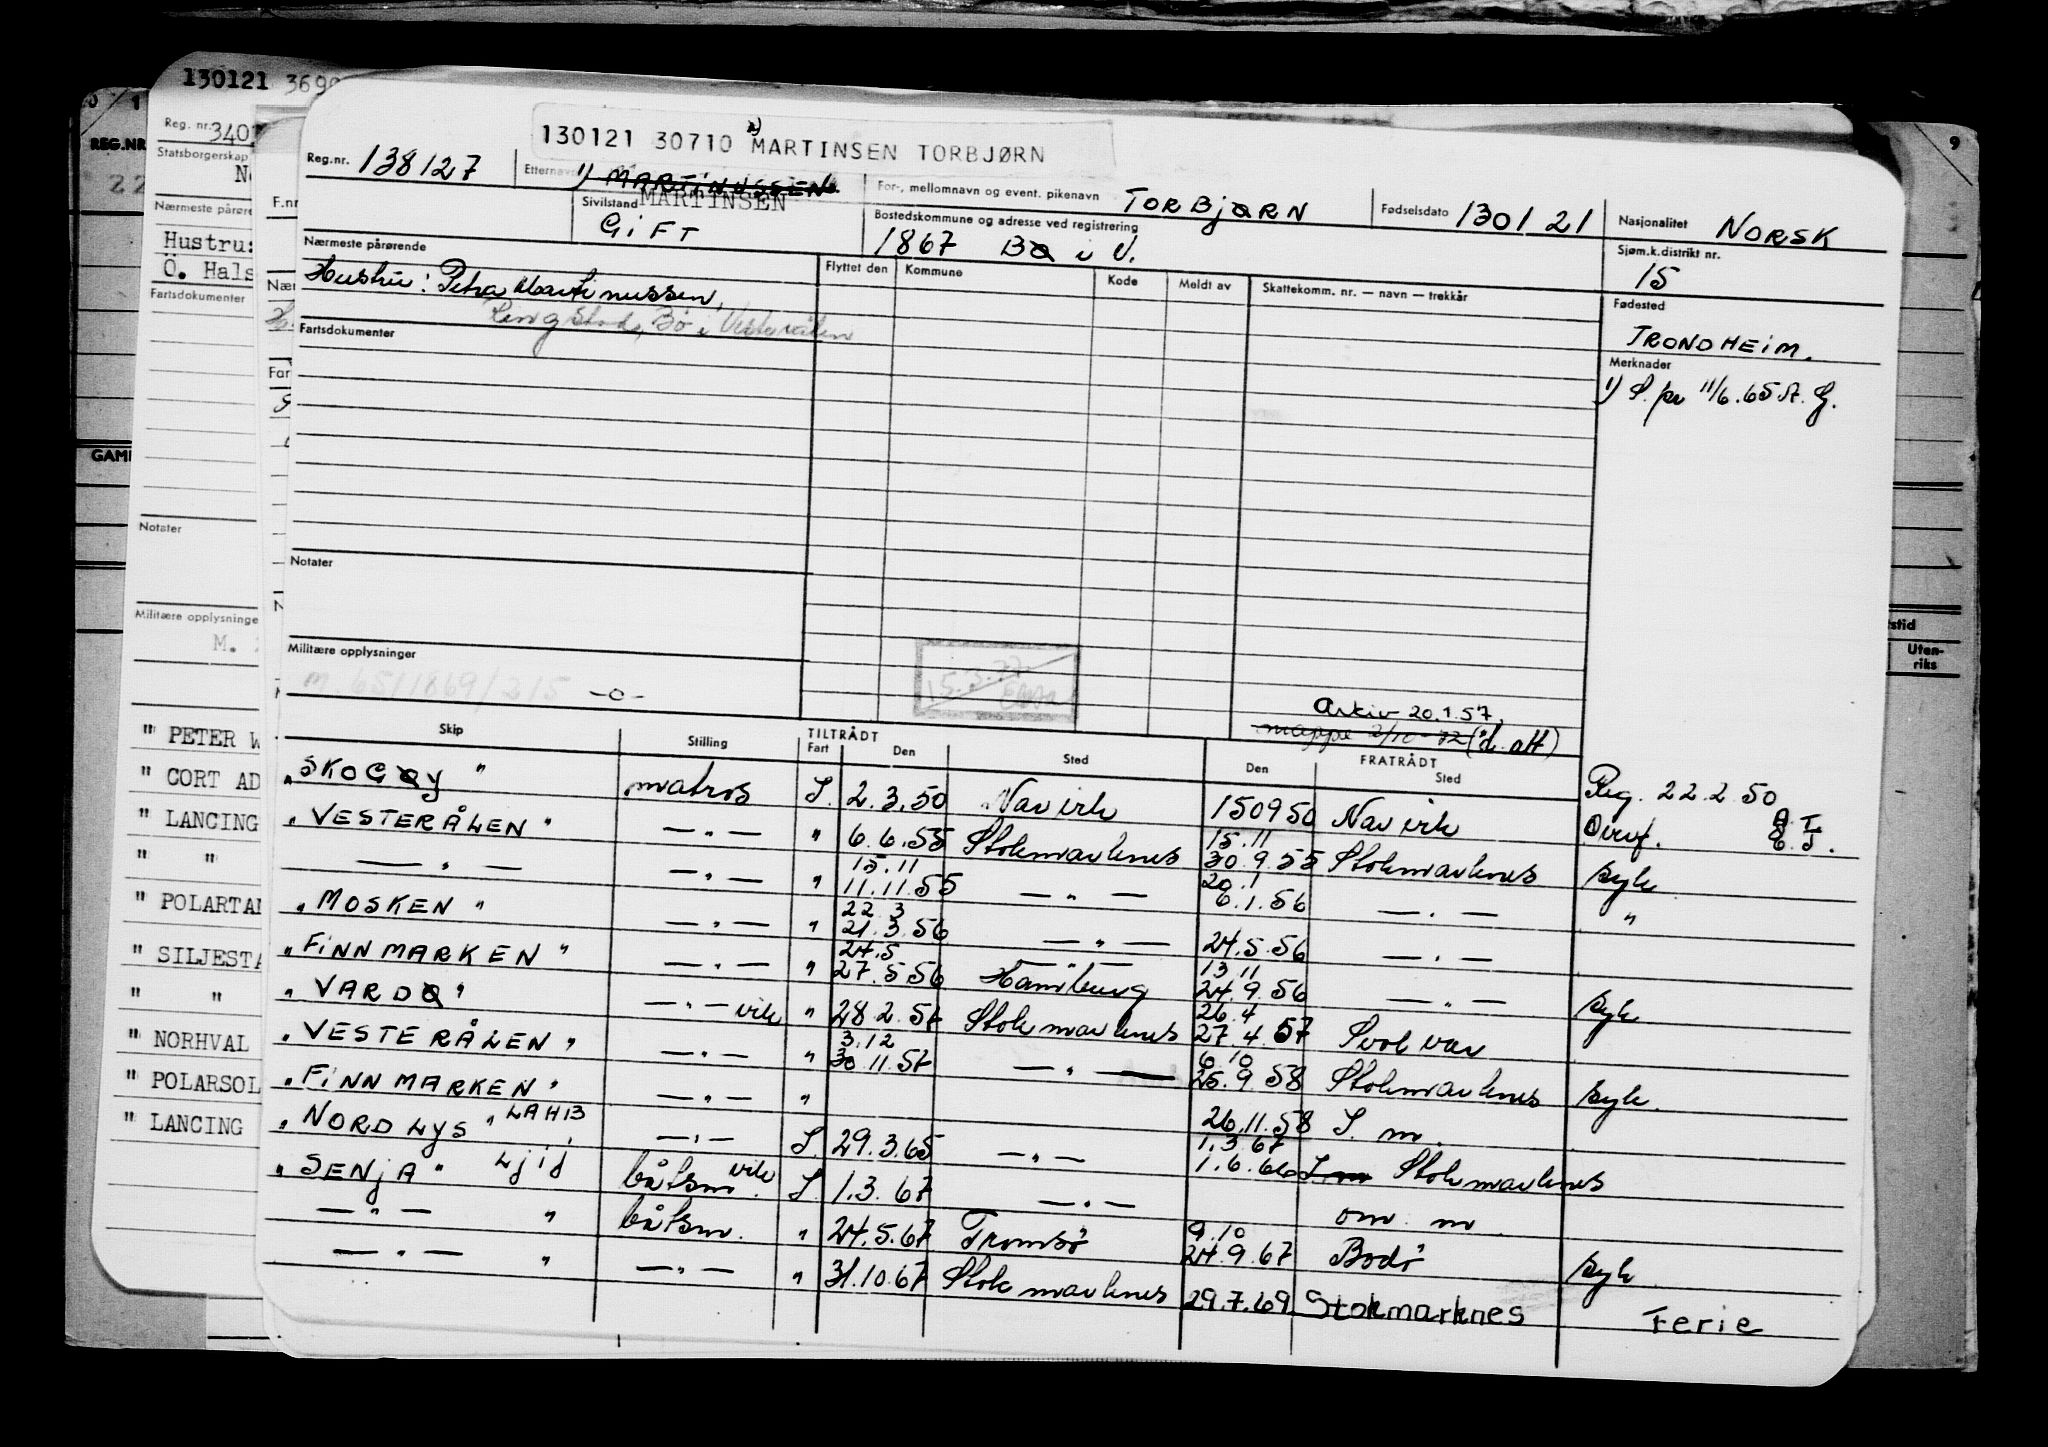 130121 369
REG.NR
Reg. nr. 340
Statsborgerskap
Nærmeste påröre
Hustru:
Ö. Hals
Fartsdokumenter
Notater
Militære opplysninge
M.
" PETER W
" CORT AD
" LANCING
" "
" POLARTAN
" SILJESTA
" "
" NORHVAL
" POLARSOL
" LANCING
GAM
F.nr
9
Uten-
riks
130121 30710 2) MARTINSEN TORBJØRN
Reg.nr. 138127
Etternavn 1) MARTINUSSEN
MARTINSEN
For-, mellomnavn og event. pikenavn TORBJØRN
Fødselsdato 130121
Nasjonalitet NORSK
Sivilstand GIFT
Bostedskommune og adresse ved registrering
1867 BØ i V.
Sjøm.k.distrikt nr.
15
Nærmeste pårørende
Hustru: Petra Martinussen,
Bø i Vesterålen
Flyttet den Kommune Kode Meldt av Skattekomm. nr. — navn — trekkår
Fødested
TRONDHEIM.
Fartsdokumenter
Merknader
1) S. pr 11/6.65 A. G.
Notater
Militære opplysninger
m. 65/1869/215 -o-
15.3.77
Arkiv 20.1.57,
mappe 2/10-72 (d. att)
Skip Stilling TILTRÅDT Fart Den Sted Den FRATRÅDT Sted
"SKOGØY" matros I. 2.3.50 Narvik 150950 Narvik Reg. 22.2.50
"VESTERÅLEN" —"— " 6.6.55 Stokmarknes 15.11 30.9.55 Stokmarknes syk
—"— —"— " 15.11 11.11.55 —"— 20.1 6.1.56 —"— "
"MOSKEN" —"— " 22.3 21.3.56 —"— 24.5.56 —"—
"FINNMARKEN" —"— " 24.5 27.5.56 Hamburg 13.11 24.9.56 —"— syk
"VARDØ" —"— vik " 28.2.57 Stokmarknes 26.4 27.4.57 Svolvær
"VESTERÅLEN" —"— " 3.12 30.11.57 —"— 6.10 25.9.58 Stokmarknes syk.
"FINNMARKEN" —"— " 26.11.58 I. m.
"NORDLYS" LAHB —"— I. 29.3.65 —"— 1.3.67 1.6.66 I m Stokmarknes
"SENJA" LJIJ båtsm. vik I. 1.3.67 —"— om. m
—"— " båtsm. " 24.5.67 Tromsø 9.10 24.9.67 Bodø syk
—"— " —"— " 31.10.67 Stokmarknes 29.7.69 Stokmarknes Ferie